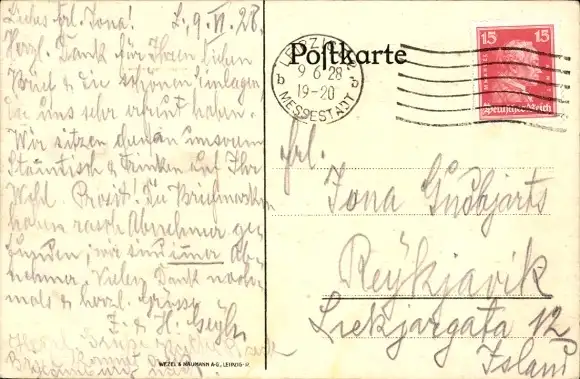 Liebes Frl. Jona! L., 9. VI. 28.
Herzl. Dank für Ihren lieben
Brief & die schönen Einlagen,
die uns sehr erfreut haben.
Wir sitzen eben an unserem
Stamtisch & trinken auf Ihr
Wohl. Prosit! Die Briefmarken
haben rasch Abnehmer ge-
funden, wir sind imer Ab-
nehmer. Vielen Dank noch-
mals & herzl. Grüsse
Z. & H.
Herzl. Grüße
Postkarte
LEIPZIG
9 6 28
19-20
b b
MESSESTADT
15 15
Deutsches Reich
Frl.
Jona Gudbjarts
Reÿkjavik
Liekjargata 12
Island
WEZEL & NAUMANN A-G., LEIPZIG-R.